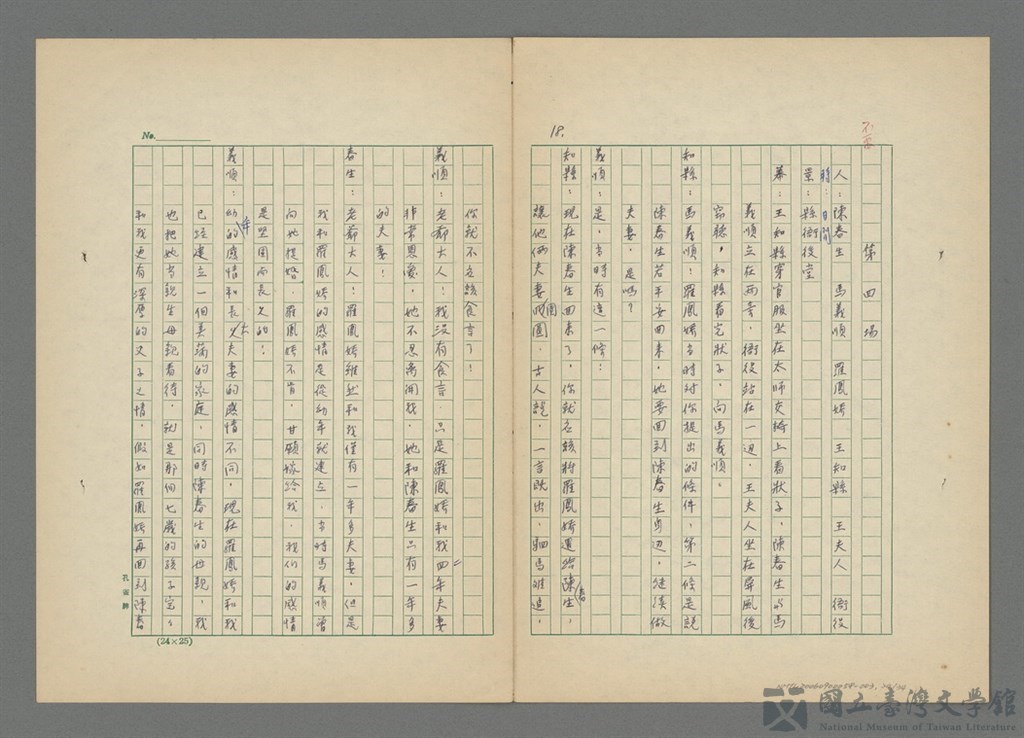 18.
第四場
人：陳春生 馬義順 羅鳳嬌 王知縣 王夫人 衙役
時：日間
景：縣衙後堂
幕：王知縣穿官服坐在太師交椅上看狀子，陳春生與馬
義順立在兩旁，衙役站在一边，王夫人坐在屏風後
竊聽，知縣看完狀子，向馬義順。
知縣：馬義順！羅鳳嬌當時对你提出的條件，第二條是說
陳春生若平安回來，她要回到陳春生身边，繼續做
夫妻，是嗎？
義順：是，當時有這一條！
知縣：現在陳春生回來了，你就应該將羅鳳嬌還給陳春生，
讓他俩夫妻团圓，古人說，一言既出，駟馬难追，
No.
你就不应該食言了！
義順：老爺大人！我沒有食言，只是羅鳳嬌和我四年夫妻
情業恩愛，她不忍离開我，她和陳春生只有一年多
的夫妻！
春生：老爺大人！羅鳳嬌雖然和我僅有一年多夫妻，但是
我和羅鳳嬌的感情是從幼年就建立，当時馬義順曾
向她提婚，羅鳳嬌不肯，甘願嫁給我，我们的感情
是坚固而長久的！
義順：幼年的感情和長大夫妻的感情不同，現在羅鳳嬌和我
已經建立一個美滿的家庭，同時陳春生的母親，我
也把她当親生母親看待，就是那個七歲的孩子宝宝
和我更有深厚的父子之情，假如羅鳳嬌再回到陳春
(24×25)
國立臺灣文學館
National Museum of Taiwan Literature